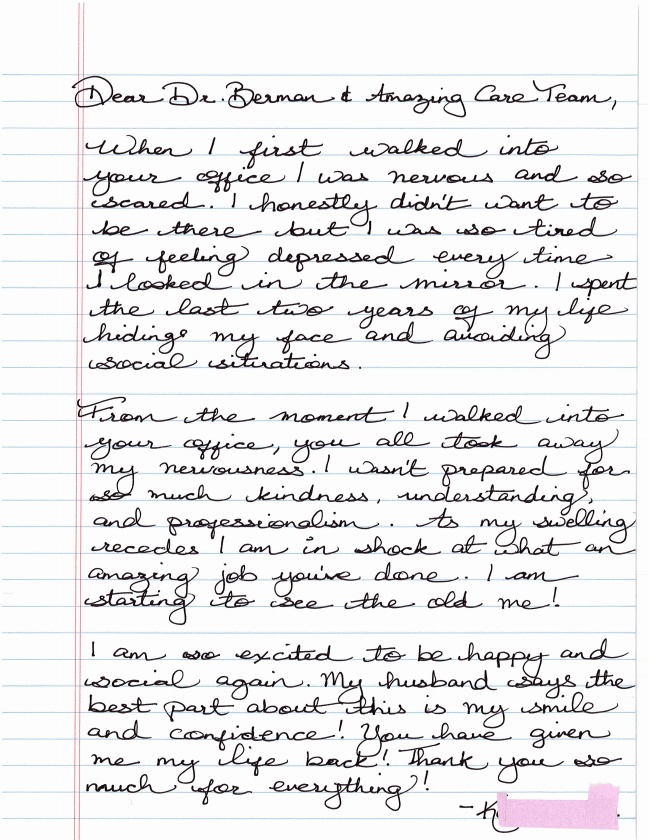 Dear Dr. Berman & Amazing Care Team,
When I first walked into
your office I was nervous and so
scared. I honestly didn't want to
be there but I was so tired
of feeling depressed every time
I looked in the mirror. I spent
the last two years of my life
hiding my face and avoiding
social situations.
From the moment I walked into
your office, you all took away
my nervousness. I wasn't prepared for
so much kindness, understanding,
and professionalism. As my swelling
recedes I am in shock at what an
amazing job you've done. I am
starting to see the old me!
I am so excited to be happy and
social again. My husband says the
best part about this is my smile
and confidence! You have given
me my life back! Thank you so
much for everything!